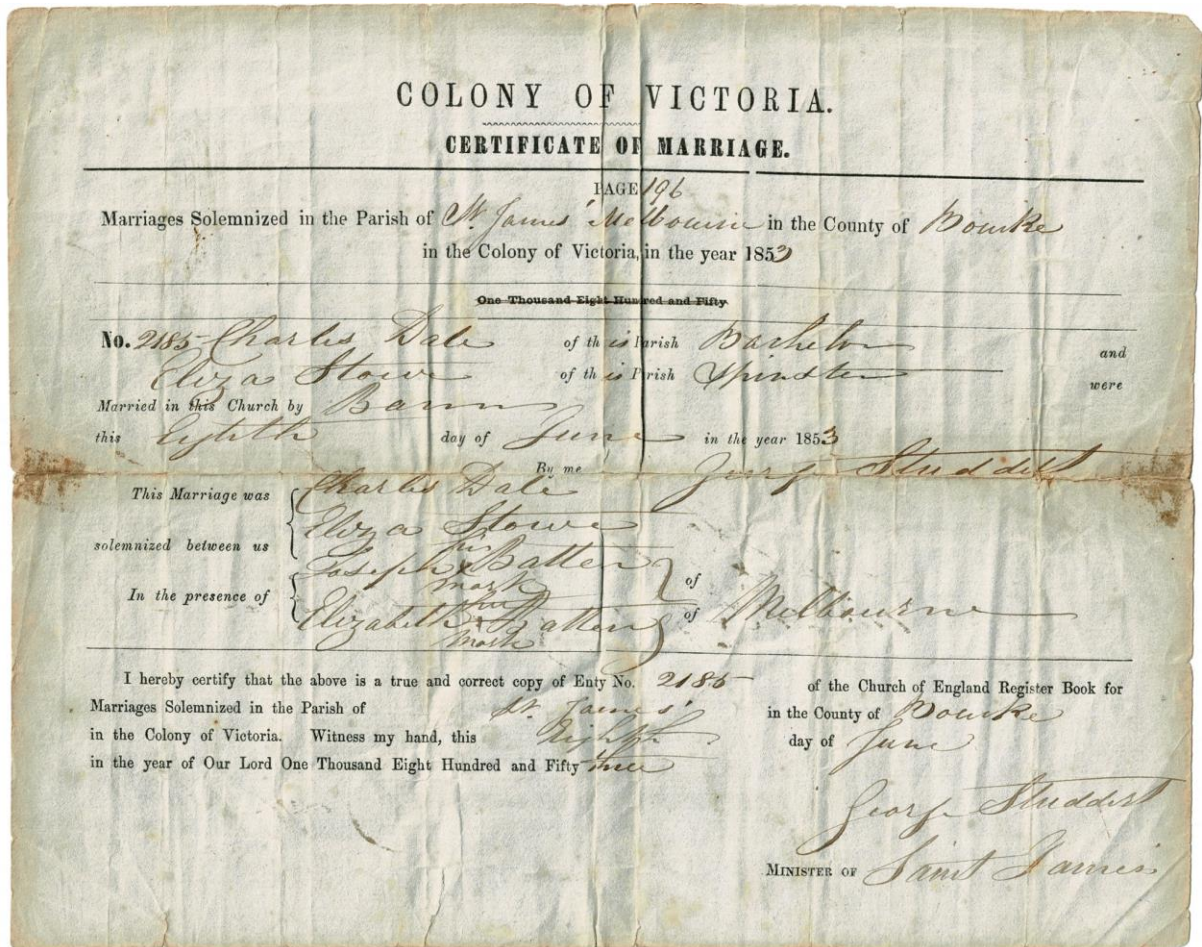 COLONY OF VICTORIA.
CERTIFICATE OF MARRIAGE.
PAGE 196
Marriages Solemnized in the Parish of St. James' Melbourne in the County of Bourke
in the Colony of Victoria, in the year 1853
One Thousand Eight Hundred and Fifty
No. 2185 Charles Dale of this Parish Bachelor and
Eliza Stowe of this Parish Spinster were
Married in this Church by Banns
this Eighth day of June in the year 1853
By me George Studdert
This Marriage was Charles Dale
solemnized between us Eliza Stowe
his
Joseph X Batten of
mark
In the presence of
her
Elizabeth X Batten of Melbourne
mark
I hereby certify that the above is a true and correct copy of Enty No. 2185 of the Church of England Register Book for
Marriages Solemnized in the Parish of St. James' in the County of Bourke
in the Colony of Victoria. Witness my hand, this Eighth day of June
in the year of Our Lord One Thousand Eight Hundred and Fifty three
George Studdert
MINISTER OF Saint James